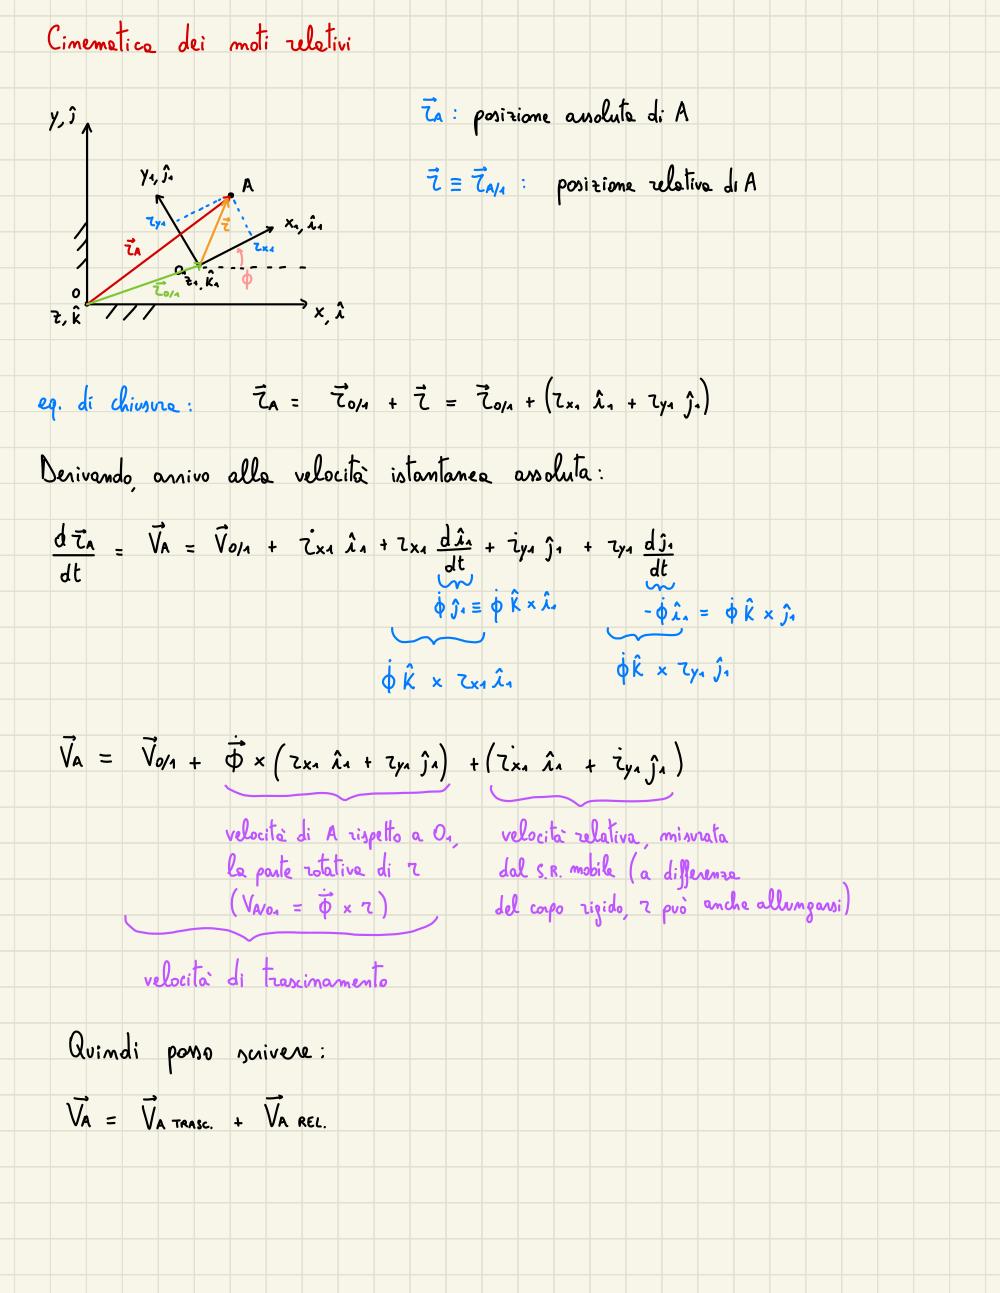 Cinematica dei moti relativi
y, ĵ
r⃗A : posizione assoluta di A
y₁, ĵ₁
A
r⃗ ≡ r⃗A/1 : posizione relativa di A
ry₁
r⃗
x₁, î₁
r⃗A
rx₁
O₁
z₁, k̂₁
ϕ
r⃗0/1
O
z, k̂
x, î
eq. di chiusura: r⃗A = r⃗0/1 + r⃗ = r⃗0/1 + (rx₁ î₁ + ry₁ ĵ₁)
Derivando, arrivo alla velocità istantanea assoluta:
dr⃗A/dt = V⃗A = V⃗0/1 + ṙx₁ î₁ + rx₁ dî₁/dt + ṙy₁ ĵ₁ + ry₁ dĵ₁/dt
ϕ̇ ĵ₁ ≡ ϕ̇ k̂ × î₁ -ϕ̇ î₁ = ϕ̇ k̂ × ĵ₁
ϕ̇ k̂ × rx₁ î₁ ϕ̇ k̂ × ry₁ ĵ₁
V⃗A = V⃗0/1 + ϕ̇⃗ × (rx₁ î₁ + ry₁ ĵ₁) + (ṙx₁ î₁ + ṙy₁ ĵ₁)
velocità di A rispetto a O₁,
la parte rotativa di r
(VA/O₁ = ϕ̇⃗ × r)
velocità relativa, misurata
dal S.R. mobile (a differenza
del corpo rigido, r può anche allungarsi)
velocità di trascinamento
Quindi posso scrivere:
V⃗A = V⃗A TRASC. + V⃗A REL.